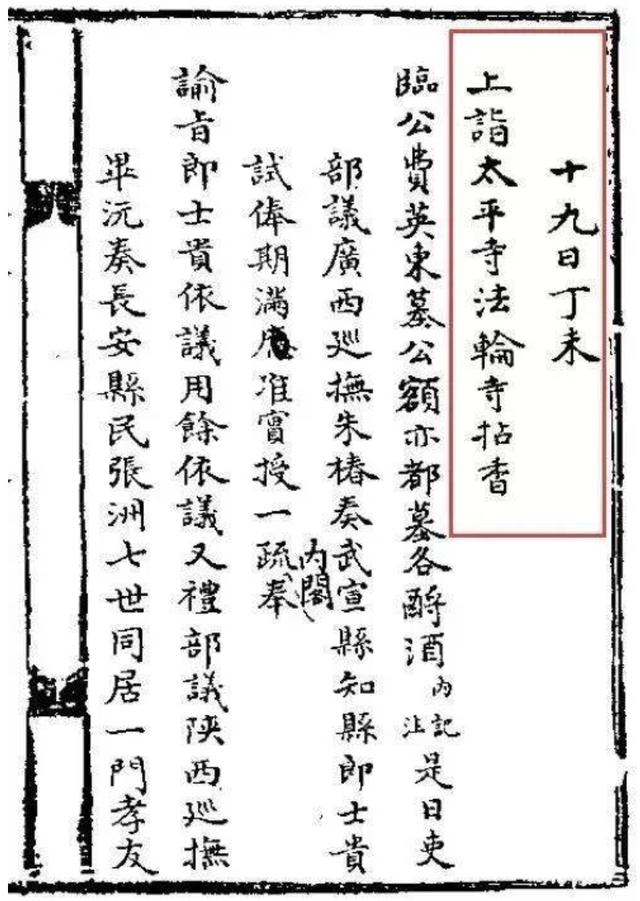 十九日丁未
上詣太平寺法輪寺拈香
臨公費英東墓公額亦都墓各酹酒內記注是日吏
部議廣西巡撫朱椿奏武宣縣知縣郎士貴
試俸期滿應准實授一疏奉
內閣
諭旨郎士貴依議用餘依議又禮部議陝西巡撫
畢沅奏長安縣民張洲七世同居一門孝友